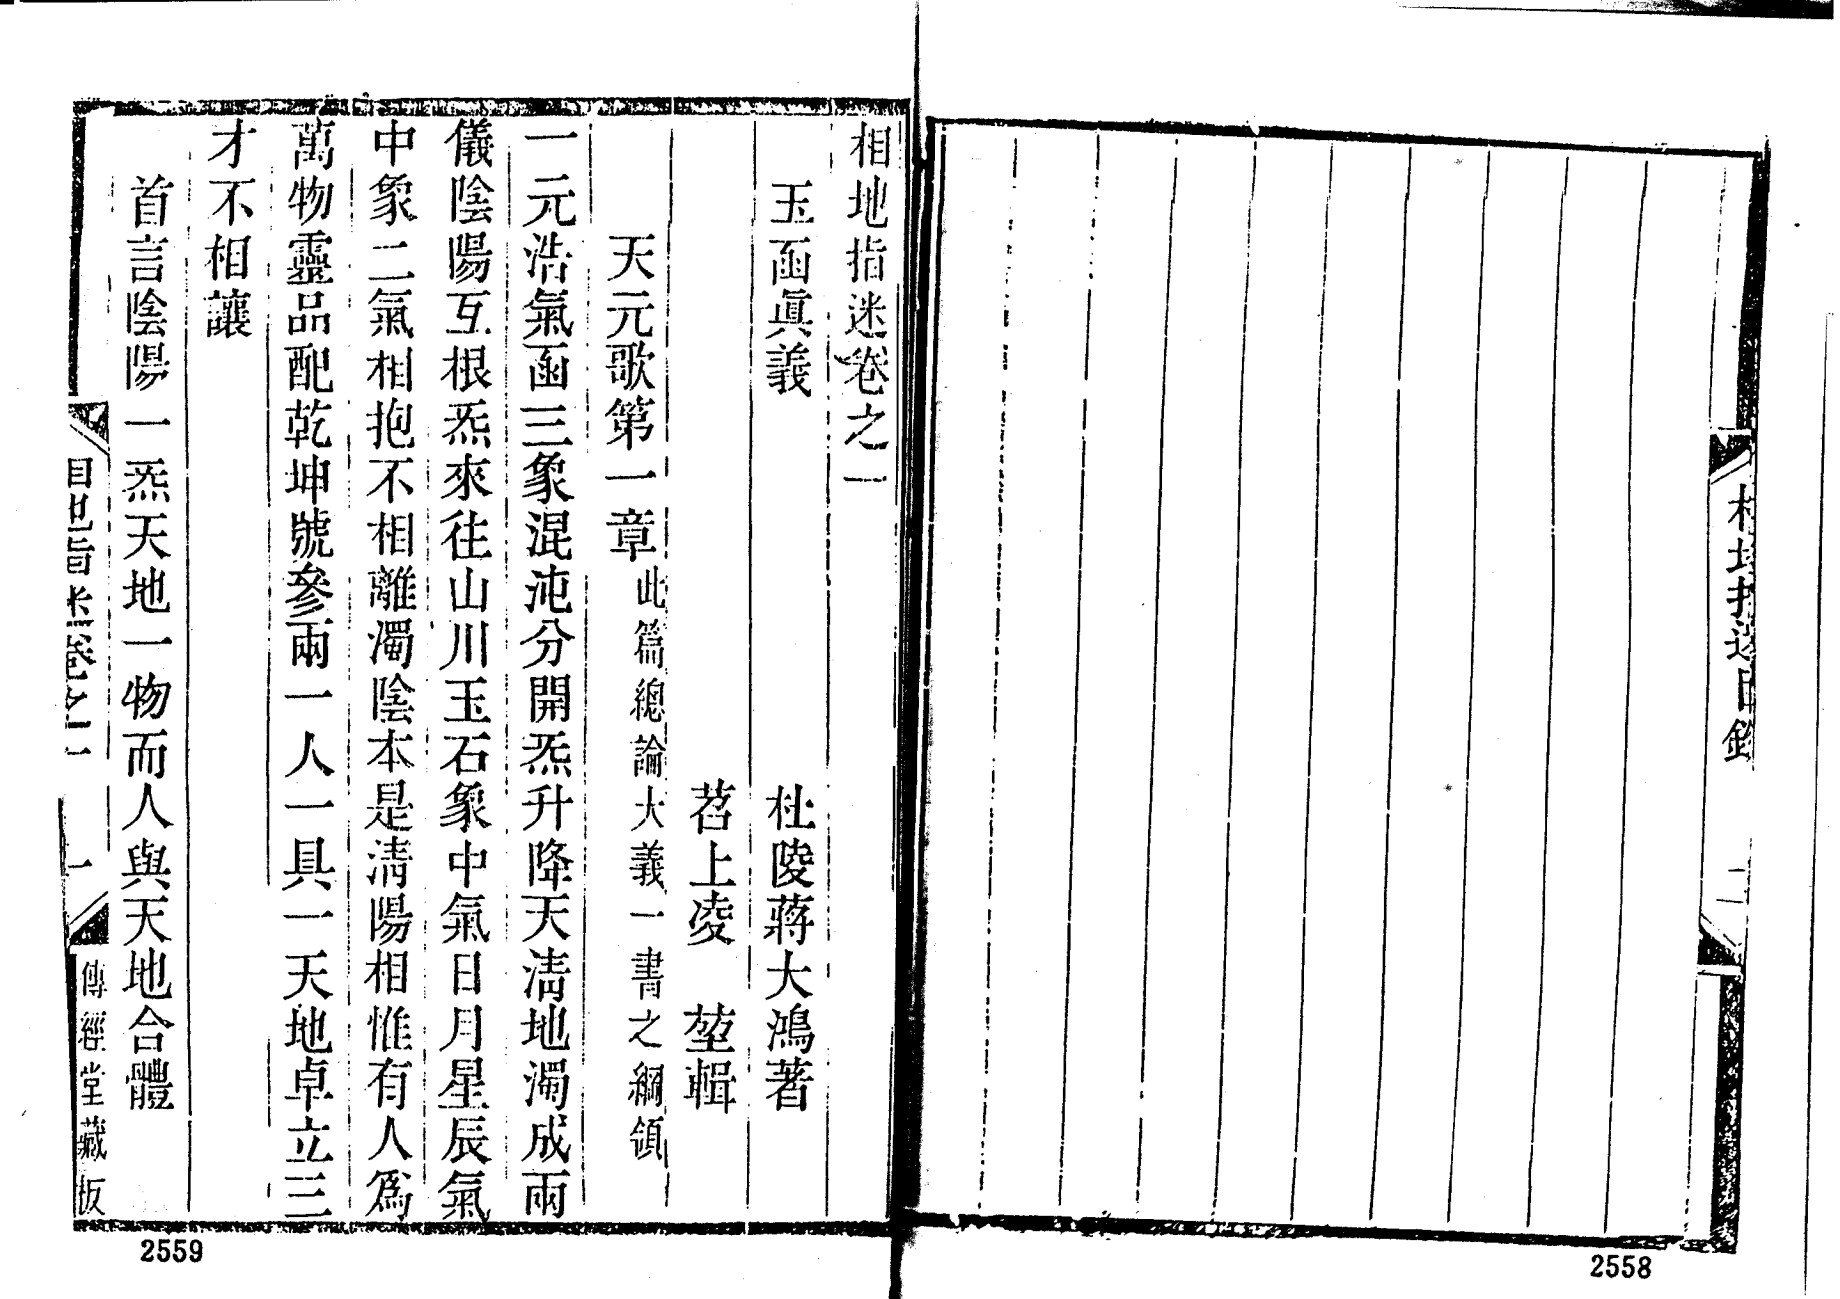 相地指迷目錄
二
2558
相地指迷卷之一
玉函眞義
杜陵蔣大鴻著
苕上凌　堃輯
天元歌第一章此篇總論大義一書之綱領
一元浩氣函三象混沌分開炁升降天淸地濁成兩
儀陰陽互根炁來往山川玉石象中氣日月星辰氣
中象二氣相抱不相離濁陰本是淸陽相惟有人爲
萬物靈品配乾坤號參兩一人一具一天地卓立三
才不相讓
首言陰陽一炁天地一物而人與天地合體
相地指迷卷之一
一
傳經堂藏板
2559